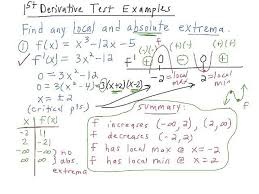 1st Derivative Test Examples
Find any local and absolute extrema.
① f(x) = x³-12x-5
f'(x) = 3x²-12
0 = 3x²-12
0 = 3(x²-4) = 3(x+2)(x-2)
x = ±2
(critical pts.)
f' (+)(+) (-)(+) (+)(+)
0 0
-2 = local max
2 = local min
x | f(x)
-2 | 11
2 | -21
∞ | ∞
-∞ | -∞
no abs. extrema
summary:
f increases (-∞, -2), (2, ∞)
f decreases (-2, 2)
f has local max @ x = -2
f has local min @ x = 2